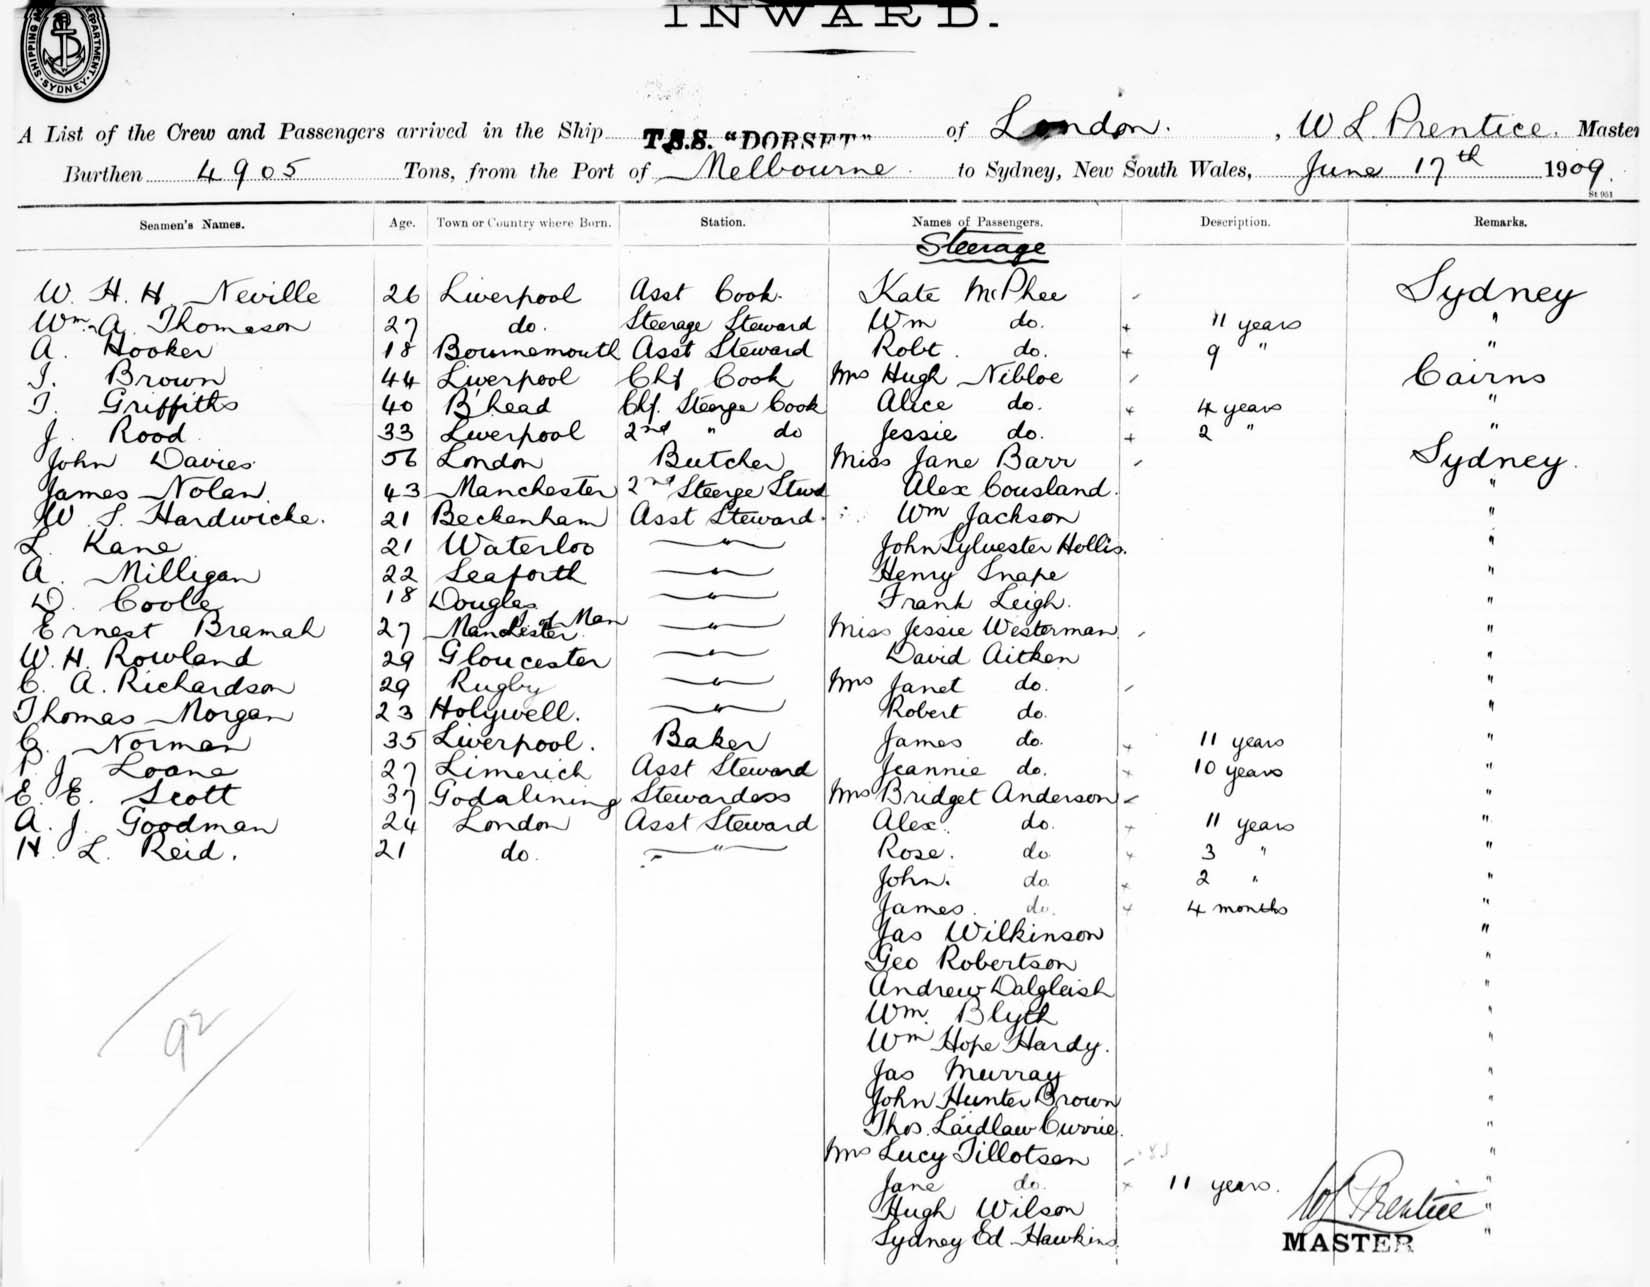 SHIPPING DEPARTMENT. SYDNEY.
INWARD.
A List of the Crew and Passengers arrived in the Ship T.S.S. "DORSET" of London. , W L Prentice. Master
Burthen 4905 Tons, from the Port of Melbourne to Sydney, New South Wales, June 17th 1909.
St 951
Seamen's Names. Age. Town or Country where Born. Station. Names of Passengers. Description. Remarks.
Steerage
W. H. H. Neville 26 Liverpool Asst Cook. Kate McPhee Sydney
Wm. A. Thomason 27 do. Steerage Steward Wm do. 11 years "
A. Hooker 18 Bournemouth Asst Steward Robt. do. 9 " "
J. Brown 44 Liverpool Chf Cook Mrs Hugh Nibloe Cairns
T. Griffiths 40 B'head Chf. Steerge Cook Alice do. 4 years "
J. Rood 33 Liverpool 2nd " do Jessie do. 2 " "
John Davies 56 London Butcher Miss Jane Barr Sydney.
James Nolan. 43 Manchester 2nd Steerge Stwd Alex Cousland. "
W. S. Hardwicke. 21 Beckenham Asst Steward. Wm Jackson "
L. Kane 21 Waterloo " John Sylvester Hollis. "
A. Milligan 22 Seaforth " Henry Snape "
D. Coole 18 Douglas I. of Man " Frank Leigh. "
Ernest Bramah 27 Manchester " Miss Jessie Westerman "
W. H. Rowland 29 Gloucester " David Aitken "
C. A. Richardson 29 Rugby " Mrs Janet do. "
Thomas Morgan 23 Holywell. " Robert do. "
G. Norman 35 Liverpool. Baker James do. 11 years "
P. J. Loane 27 Limerick Asst Steward Jeannie do. 10 years "
E. E. Scott 37 Godalining Stewardess Mrs Bridget Anderson "
A. J. Goodman 24 London Asst Steward Alex. do. 11 years "
H. L. Reid. 21 do. " Rose. do 3 " "
John. do 2 " "
James. do. 4 months "
Jas Wilkinson "
Geo Robertson "
Andrew Dalgleish "
Wm. Blyth "
Wm Hope Hardy. "
Jas Murray "
John Hunter Brown "
Thos. Laidlaw Currie. "
Mrs Lucy Tillotsen "
Jane do. 11 years. "
Hugh Wilson W L Prentice "
Sydney Ed Hawkins MASTER "
92